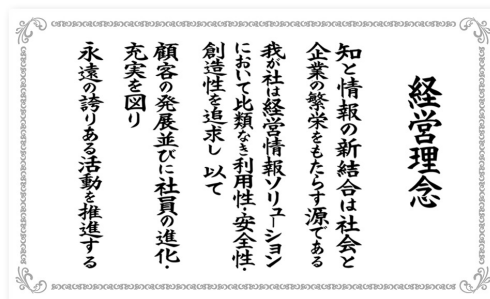 経営理念
知と情報の新結合は社会と
企業の繁栄をもたらす源である
我が社は経営情報ソリューション
において比類なき利用性・安全性・
創造性を追求し 以て
顧客の発展並びに社員の進化・
充実を図り
永遠の誇りある活動を推進する